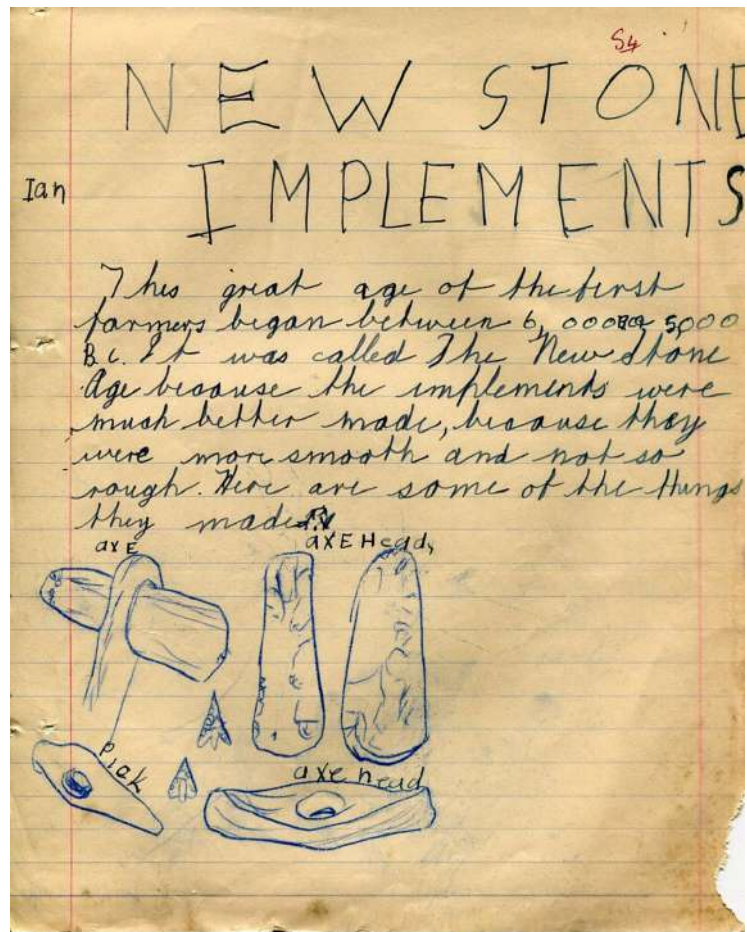 S4
NEW STONE
IMPLEMENTS
Ian
This great age of the first
farmers began between 6,000 5,000
B.C. It was called The New Stone
Age because the implements were
much better made, because they
were more smooth and not so
rough. Here are some of the things
they made
axE
axE Head,
Pick
axe head